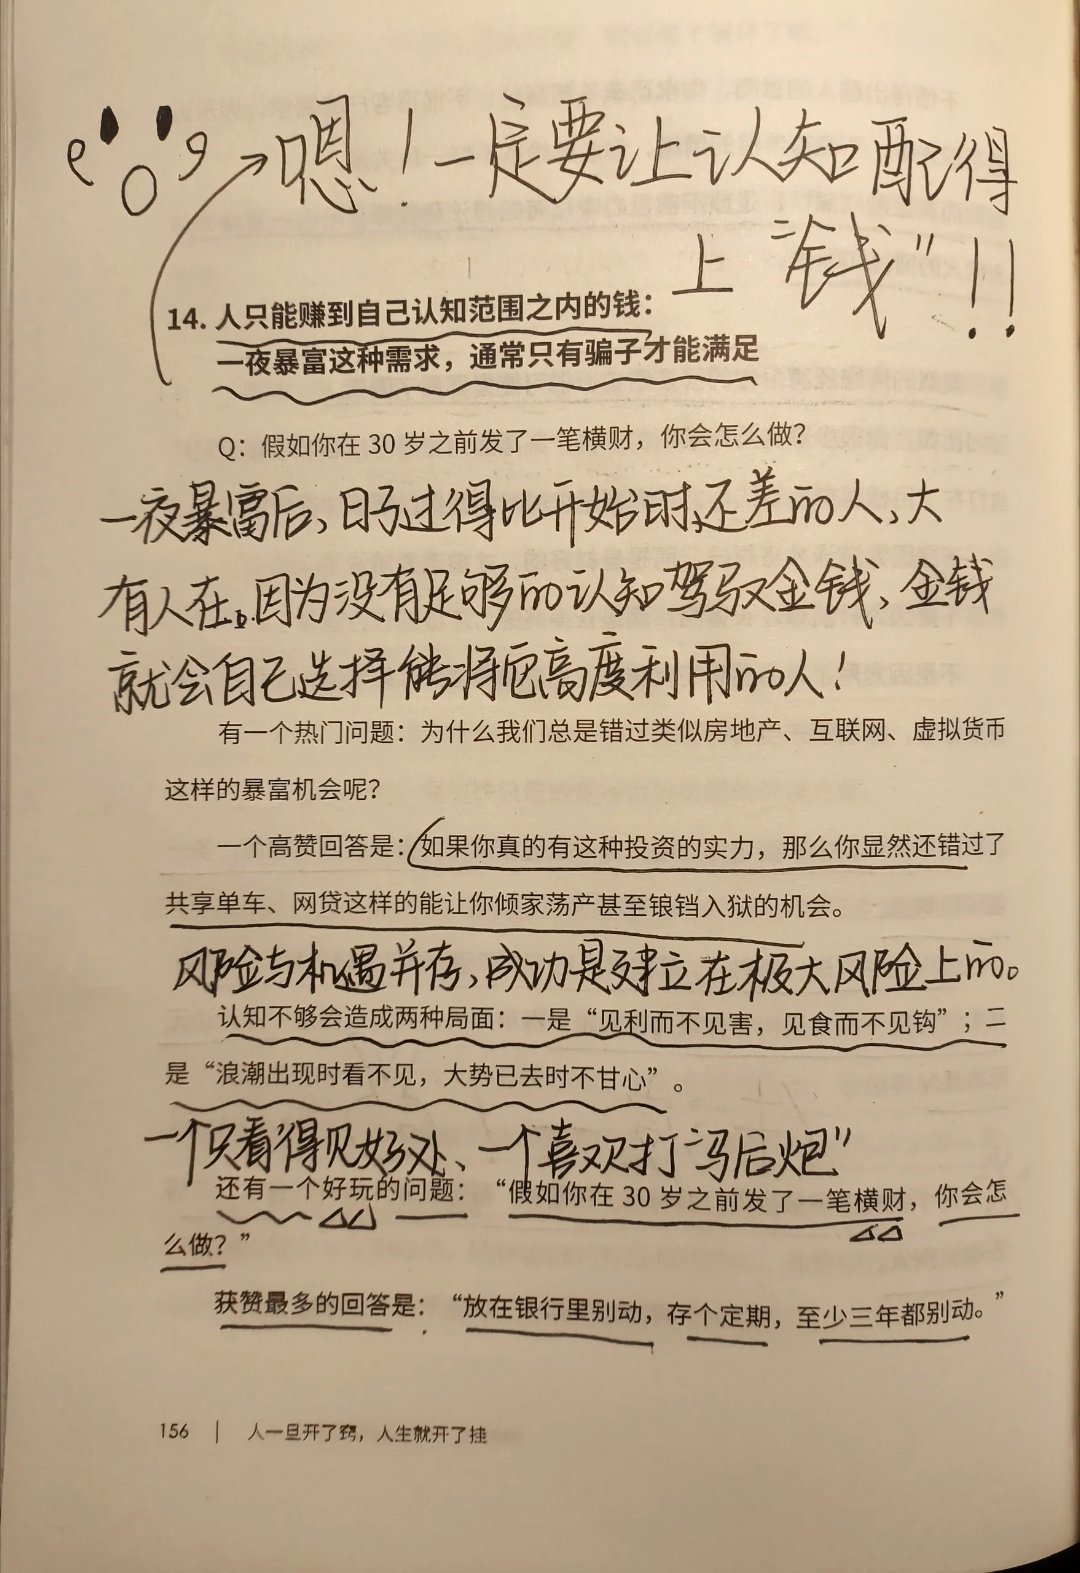 嗯！一定要让认知配得
上“钱”!!
14. 人只能赚到自己认知范围之内的钱：
一夜暴富这种需求，通常只有骗子才能满足
Q：假如你在 30 岁之前发了一笔横财，你会怎么做？
一夜暴富后，日子过得比开始时还差的人，大
有人在。因为没有足够的认知驾驭金钱、金钱
就会自己选择能将它高度利用的人！
有一个热门问题：为什么我们总是错过类似房地产、互联网、虚拟货币
这样的暴富机会呢？
一个高赞回答是：如果你真的有这种投资的实力，那么你显然还错过了
共享单车、网贷这样的能让你倾家荡产甚至锒铛入狱的机会。
风险与机遇并存，成功是建立在极大风险上的。
认知不够会造成两种局面：一是“见利而不见害，见食而不见钩”；二
是“浪潮出现时看不见，大势已去时不甘心”。
一个只看得见好处、一个喜欢打“马后炮”
还有一个好玩的问题：“假如你在 30 岁之前发了一笔横财，你会怎
么做？”
获赞最多的回答是：“放在银行里别动，存个定期，至少三年都别动。”
156 | 人一旦开了窍，人生就开了挂